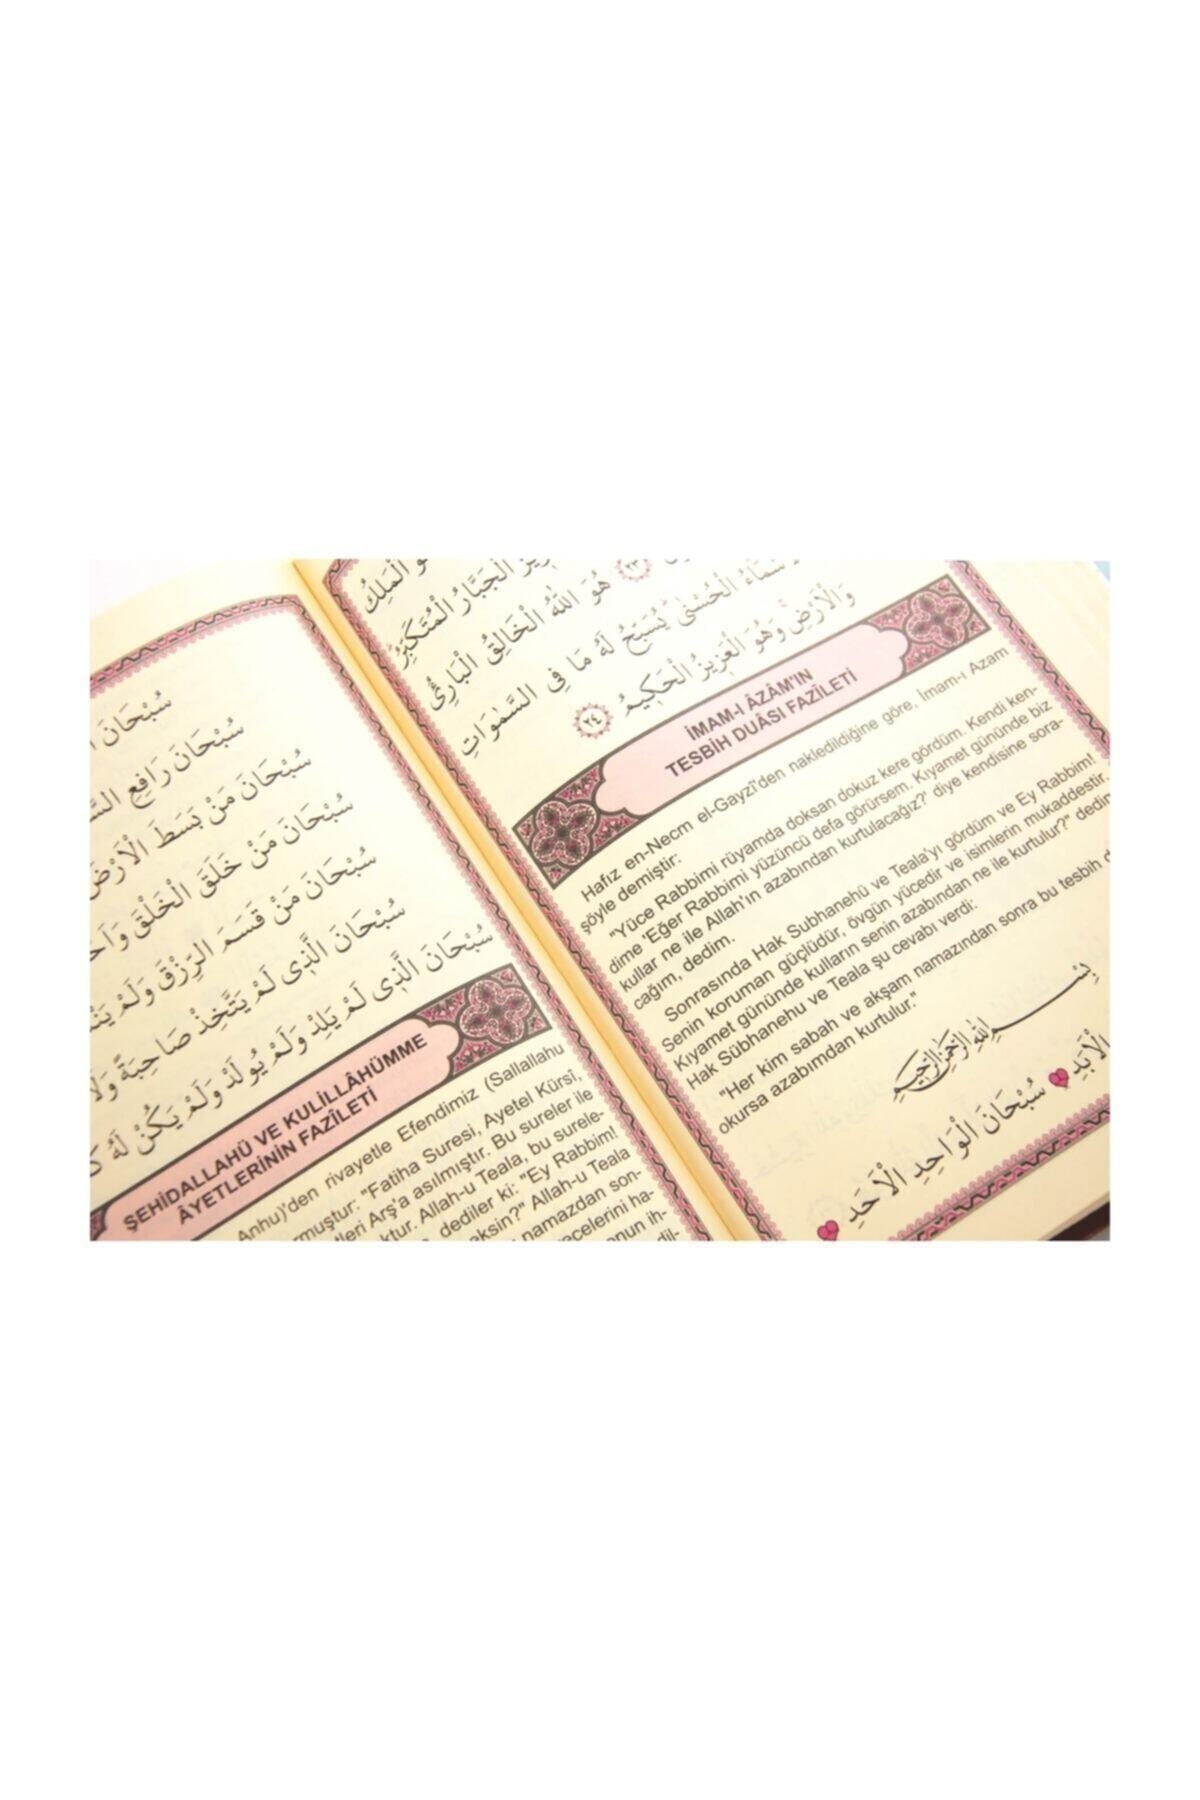 سُبْحَانَ
سُبْحَانَ رَافِعِ
سُبْحَانَ مَنْ بَسَطَ الْاَرْضَ
سُبْحَانَ مَنْ خَلَقَ الْخَلْقَ
سُبْحَانَ مَنْ قَسَمَ الرِّزْقَ وَلَمْ
سُبْحَانَ الَّذِى لَمْ يَتَّخِذْ صَاحِبَةً وَلَا
سُبْحَانَ الَّذِى لَمْ يَلِدْ وَلَمْ يُولَدْ وَلَمْ يَكُنْ لَهُ
ŞEHİDALLAHÜ VE KULİLLÂHÜMME
ÂYETLERİNİN FAZÎLETİ
Anhu)'den rivayetle Efendimiz (Sallallahu
rmuştur: "Fatiha Suresi, Ayetel Kürsî,
tleri Arş'a asılmıştır. Bu sureler ile
ktur. Allah-u Teala, bu surele-
dediler ki: "Ey Rabbim!
eksin?" Allah-u Teala
namazdan son-
ecelerini ha-
onun ih-
dil-
الْمَلِكُ
الْجَبَّارُ الْمُتَكَبِّرُ
﴿٢٣﴾ هُوَ اللّٰهُ الْخَالِقُ الْبَارِئُ
الْحُسْنٰى يُسَبِّحُ لَهُ مَا فِى السَّمٰوَاتِ
وَالْاَرْضِ وَهُوَ الْعَزِيزُ الْحَكِيمُ ﴿٢٤﴾
İMAM-I ÂZÂM'IN
TESBİH DUÂSI FAZÎLETİ
Hafız en-Necm el-Gayzî'den nakledildiğine göre, İmam-ı Azam
şöyle demiştir:
"Yüce Rabbimi rüyamda doksan dokuz kere gördüm. Kendi ken-
dime 'Eğer Rabbimi yüzüncü defa görürsem. Kıyamet gününde biz
kullar ne ile Allah'ın azabından kurtulacağız?' diye kendisine sora-
cağım, dedim.
Sonrasında Hak Subhanehü ve Teala'yı gördüm ve Ey Rabbim!
Senin koruman güçlüdür, övgün yücedir ve isimlerin mukaddestir.
Kıyamet gününde kulların senin azabından ne ile kurtulur?" dedim
Hak Sübhanehu ve Teala şu cevabı verdi:
"Her kim sabah ve akşam namazından sonra bu tesbih d
okursa azabımdan kurtulur."
بِسْمِ اللّٰهِ الرَّحْمٰنِ الرَّحِيمِ
الْاَبَدِ سُبْحَانَ الْوَاحِدِ الْاَحَدِ